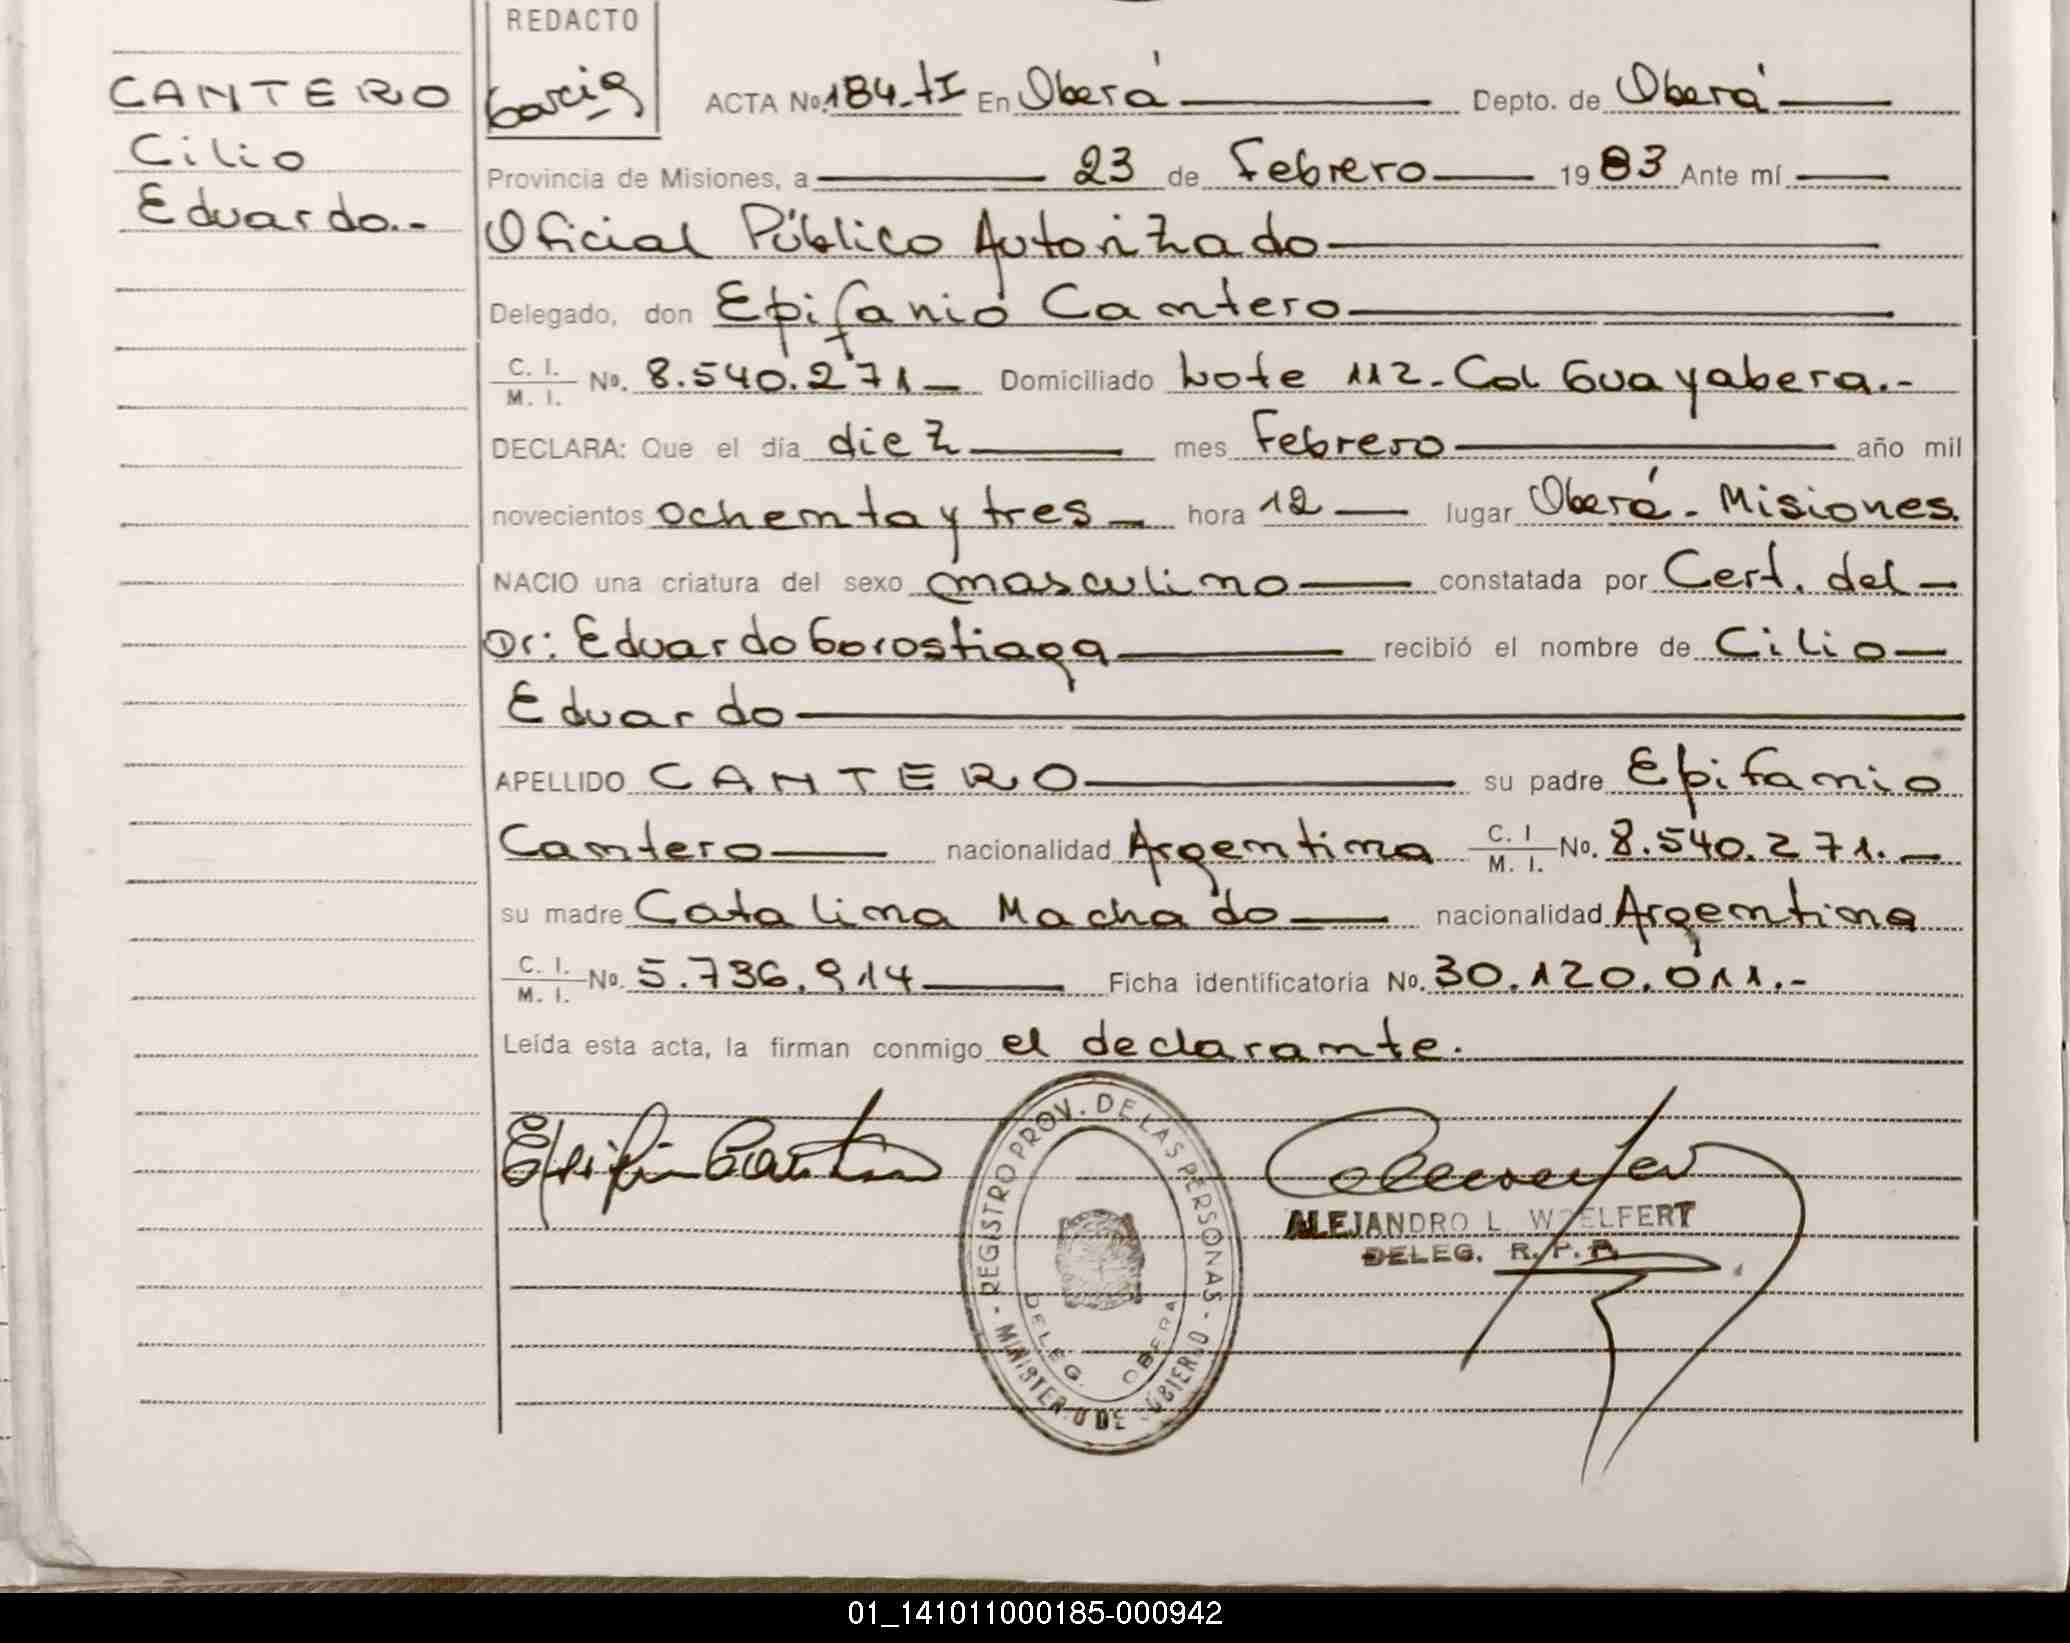 REDACTO
CANTERO
Cilio
Eduardo.-
Garcia
ACTA No. 184-tI En Oberá Depto. de Oberá
Provincia de Misiones, a 23 de Febrero 1983 Ante mí
Oficial Público Autorizado
Delegado, don Epifanio Cantero
C. I. / M. I. No. 8.540.271 Domiciliado Lote 112-Col Guayabera.-
DECLARA: Que el día diez mes Febrero año mil
novecientos ochenta y tres hora 12 lugar Oberá-Misiones.
NACIO una criatura del sexo masculino constatada por Cert. del
Dr: Eduardo Gorostiaga recibió el nombre de Cilio
Eduardo
APELLIDO CANTERO su padre Epifanio
Cantero nacionalidad Argentina C. I / M. I. No. 8.540.271.
su madre Catalina Machado nacionalidad Argentina
C. I. / M. I. No. 5.736.914 Ficha identificatoria No. 30.120.011.-
Leída esta acta, la firman conmigo el declarante.
REGISTRO PROV. DE LAS PERSONAS - MINISTERIO DE GOBIERNO -
DELEG. OBERA
ALEJANDRO L. WOELFERT
DELEG. R. P. P.
01_141011000185-000942